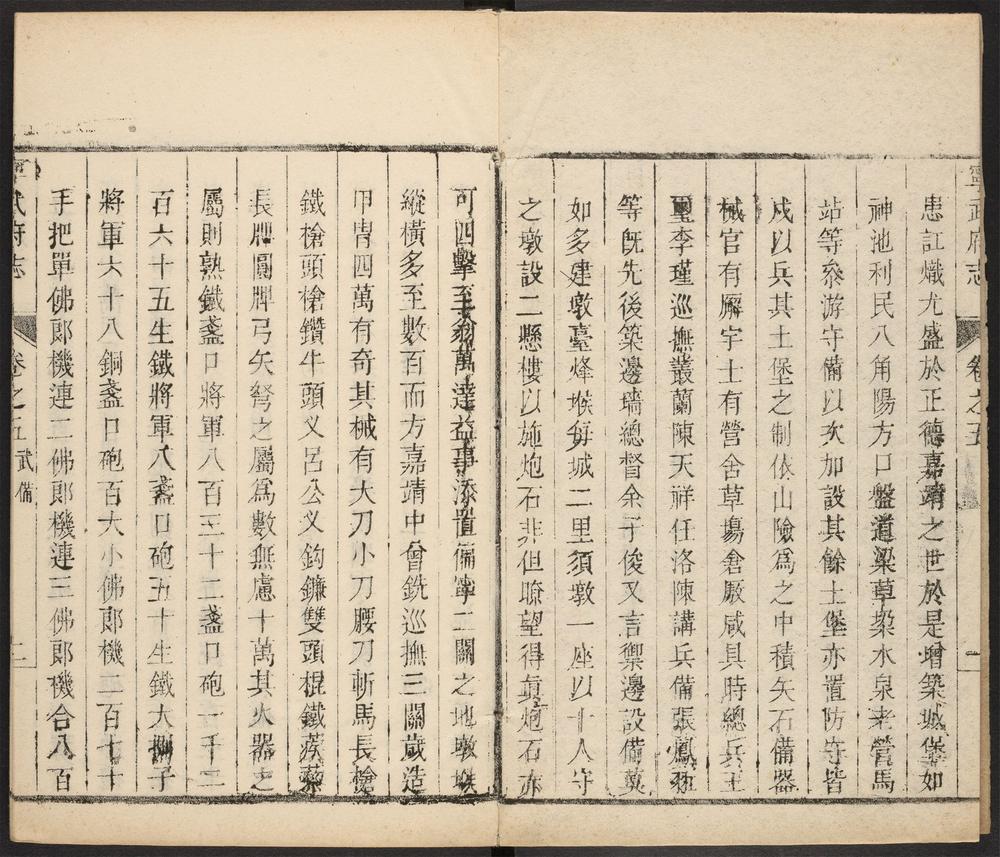 寧武府志 卷之五 一
患訌熾尤盛於正德嘉靖之世於是增築城堡如
神池利民八角陽方口盤道梁草垜水泉老營馬
站等叅游守備以次加設其餘土堡亦置防守皆
戍以兵其土堡之制依山險爲之中積矢石備器
械官有廨宇士有營舍草塲倉厫咸具時總兵王
璽李瑾巡撫叢蘭陳天祥任洛陳講兵備張鳳䎖
等旣先後築邊墻總督余子俊又言禦邊設備莫
如多建墩臺烽堠每城二里須墩一座以十人守
之墩設二懸樓以施炮石非但瞭望得眞炮石亦
可四擊至翁萬達益事添置偏寧二關之地墩堠
縱橫多至數百而方嘉靖中曾銑巡撫三關歲造
甲冑四萬有奇其械有大刀小刀腰刀斬馬長槍
鐵槍頭槍鑽牛頭义呂公义鈎鐮雙頭棍鐵蒺藜
長牌圓牌弓矢弩之屬爲數無慮十萬其火器之
屬則熟鐵盞口將軍八百三十二盞口砲一千二
百六十五生鐵將軍八盞口砲五十生鐵大捌子
將軍六十八銅盞口砲百大小佛郎機二百七十
手把單佛郎機連二佛郎機連三佛郎機合八百
寧武府志 卷之五 武備 二